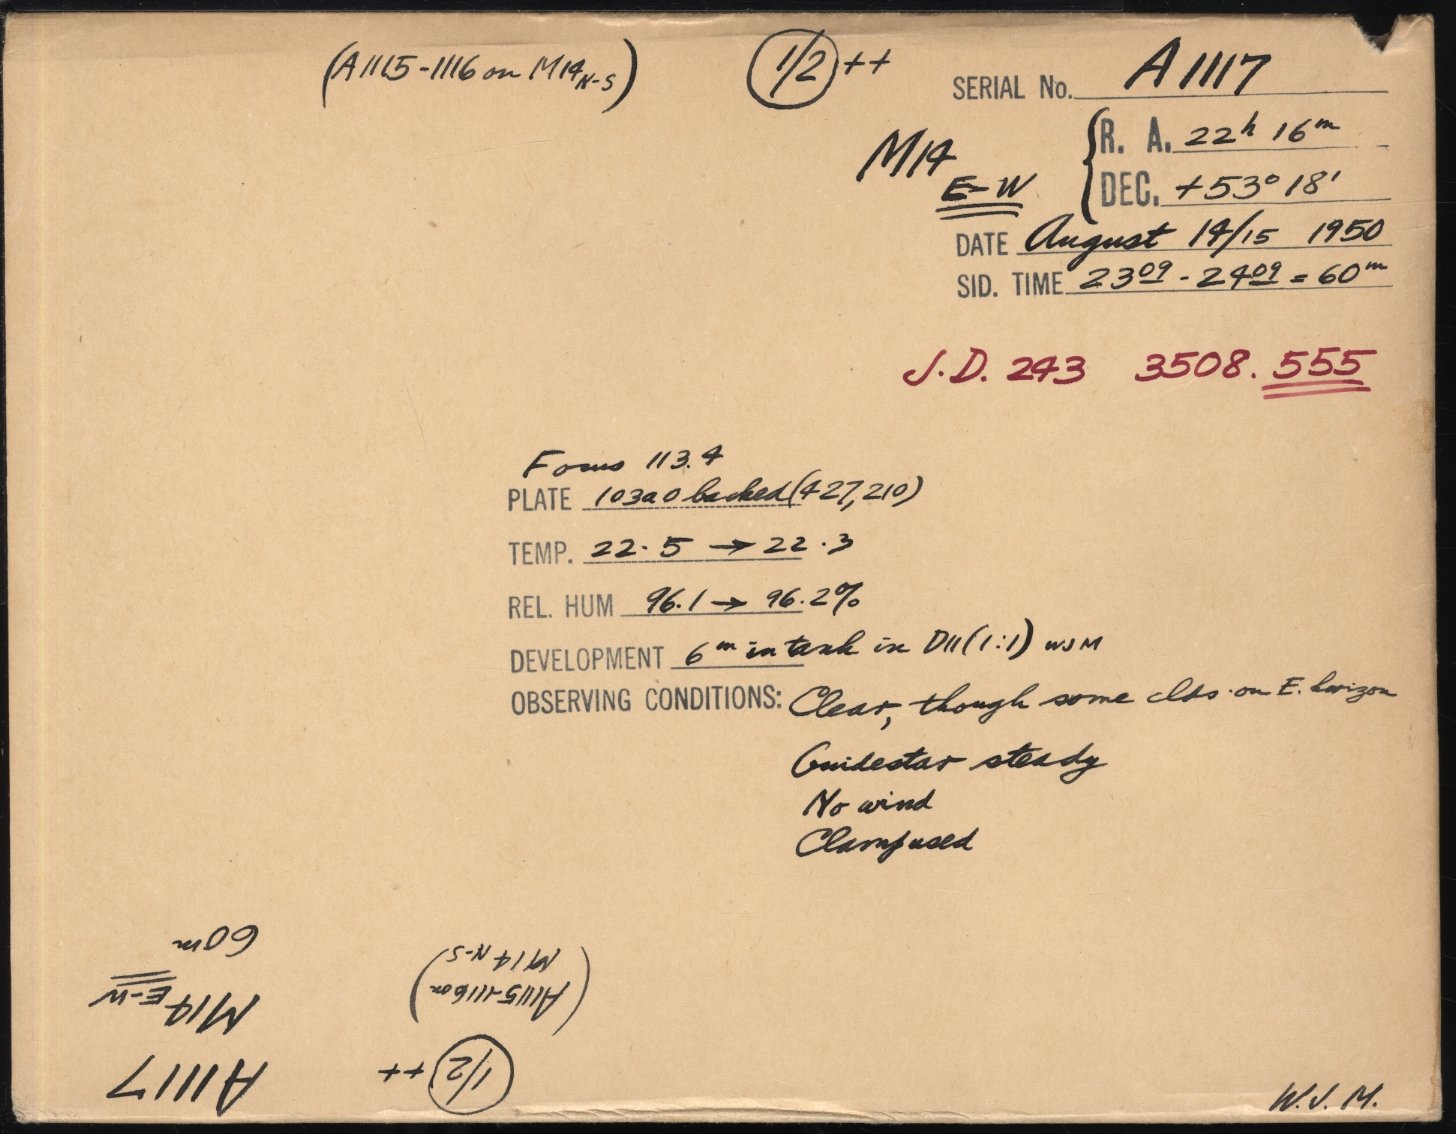 (A1115-1116 on M14 N-S)
1/2 ++
SERIAL No. A1117
M14 E-W
R. A. 22h 16m
DEC. +53° 18'
DATE August 14/15 1950
SID. TIME 23 09 - 24 09 = 60m
J.D. 243 3508.555
Focus 113.4
PLATE 103a0 backed (427,210)
TEMP. 22.5 → 22.3
REL. HUM 96.1 → 96.2%
DEVELOPMENT 6m in tank in D11 (1:1) WJM
OBSERVING CONDITIONS: Clear, though some clds. on E. horizon
Guidestar steady
No wind
Clamp used
A1117
M14 E-W
60m
1/2 ++
(A1115-1116 on
M14 N-S)
W.J.M.